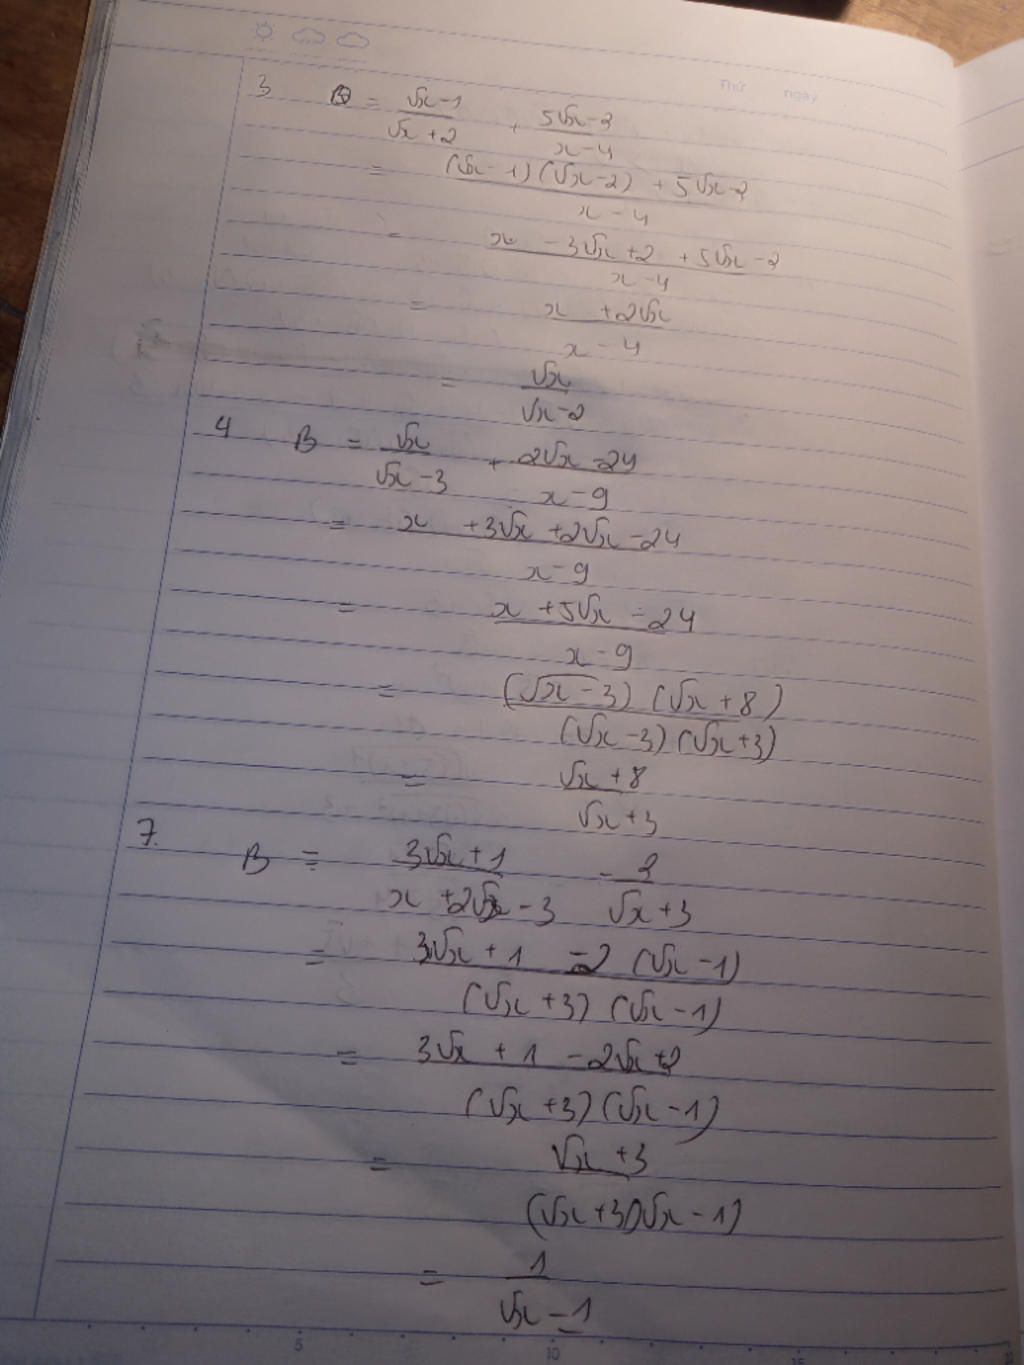 Thứ ngày
3 B = (√x - 1)/(√x + 2) + (5√x - 2)/(x - 4)
= ((√x - 1)(√x - 2) + 5√x - 2)/(x - 4)
= (x - 3√x + 2 + 5√x - 2)/(x - 4)
= (x + 2√x)/(x - 4)
= √x/(√x - 2)
4 B = √x/(√x - 3) + (2√x - 24)/(x - 9)
= (x + 3√x + 2√x - 24)/(x - 9)
= (x + 5√x - 24)/(x - 9)
= ((√x - 3)(√x + 8))/((√x - 3)(√x + 3))
= (√x + 8)/(√x + 3)
7. B = (3√x + 1)/(x + 2√x - 3) - 2/(√x + 3)
= (3√x + 1 - 2(√x - 1))/((√x + 3)(√x - 1))
= (3√x + 1 - 2√x + 2)/((√x + 3)(√x - 1))
= (√x + 3)/((√x + 3)(√x - 1))
= 1/(√x - 1)
5 10 15